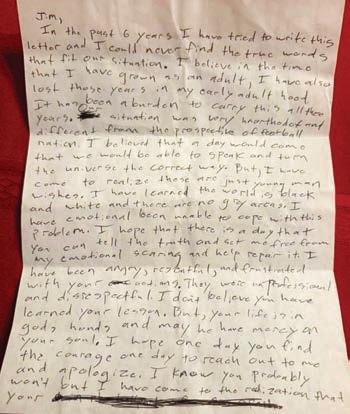 Jim,
In the past 6 years I have tried to write this
letter and I could never find the true words
that fit our situation. I believe in the time
that I have grown as an adult, I have also
lost those years in my early adult hood.
It has been a burden to carry this all these
years. Our situation was very unorthodox and
different from the prospective of football
nation. I believed that a day would come
that we would be able to speak and turn
the universe the correct way. But, I have
come to realize those are just young man
wishes. I have learned the world is black
and white and there are no gray areas. I
have emotional been unable to cope with this
problem. I hope that there is a day that
you can tell the truth and set me free from
my emotional scaring and help repair it. I
have been angry, resentful, and frustrated
with your actions. They were unprofessional
and disrespectful. I don't believe you have
learned your lesson. But, your life is in
gods hands and may he have mercy on
your soul. I hope one day you find
the courage one day to reach out to me
and apologize. I know you probably
won't but I have come to the realization that
your